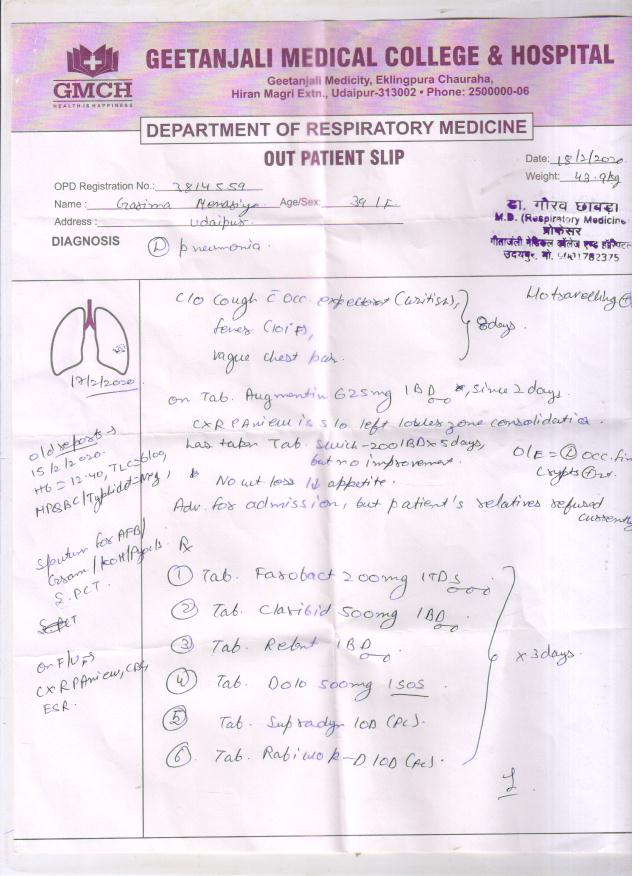 GEETANJALI MEDICAL COLLEGE & HOSPITAL
GMCH
HEALTH IS HAPPINESS
Geetanjali Medicity, Eklingpura Chauraha,
Hiran Magri Extn., Udaipur-313002 • Phone: 2500000-06
DEPARTMENT OF RESPIRATORY MEDICINE
OUT PATIENT SLIP
Date: 18/2/2020
Weight: 43.9kg
OPD Registration No.: 3814559
Name : Age/Sex: 39 / F
Address : Udaipur
डा. गौरव छाबड़ा
M.D. (Respiratory Medicine
प्रोफेसर
गीतांजली मेडिकल कॉलेज एण्ड हॉस्पिटल
उदयपुर. मो. 782375
DIAGNOSIS Ⓛ pneumonia.
C/o Cough c̄ occ. expectorat (whitish),
fever (101°F),
vague chest pain.
} 8days.
H/o travelling ⊕
17/2/2020
on Tab. Augmentin 625mg 1BD, since 2days.
CXR PA view is s/o left lower zone consolidation.
has taken Tab. 200 1BD x 5days,
but no improvement.
O/E = Ⓛ occ. fin
crypts ⊕nt.
No wt loss / ↓ appetite.
Adv. for admission, but patient's relatives refused
currently
old reports →
15/2/2020.
Hb = 12.40, TLC=6100,
MP QBC/Typhidot=Neg,
Sputum for AFB/
Gram/KOH/
S. PCT
on F/U
CXR PA view, CBC,
ESR.
Rx
① Tab. Farobact 200mg 1TDS
② Tab. Claribid 500mg 1BD
③ Tab. 1BD
④ Tab. Dolo 500mg 1SOS
⑤ Tab. Supradyn 1OD (PC).
⑥ Tab. -D 1OD (AC).
} x 3days.